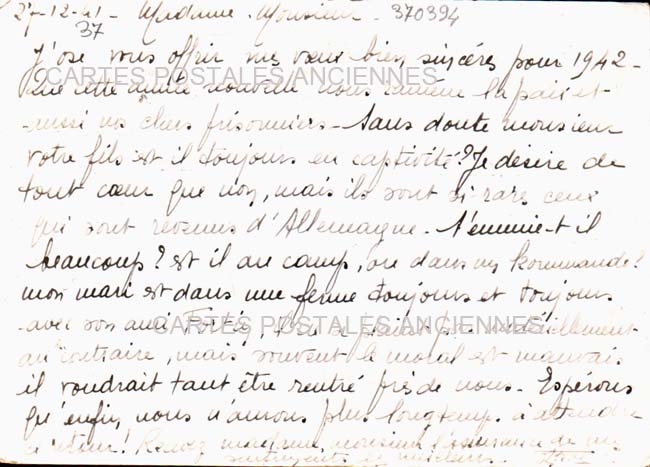 27-12-41 - Madame - Monsieur - 370394
37
J'ose vous offrir mes vœux bien sincères pour 1942 -
CARTES POSTALES ANCIENNES
Que cette année nouvelle nous ramène la paix et
aussi nos chers prisonniers - Sans doute monsieur
votre fils est il toujours en captivité? Je désire de
tout cœur que non, mais ils sont si rares ceux
qui sont revenus d'Allemagne - S'ennuie-t il
beaucoup? est il au camp, ou dans un kommando?
mon mari est dans une ferme toujours et toujours
avec son ami
CARTES POSTALES ANCIENNES
au contraire, mais souvent le moral est mauvais
il voudrait tant être rentré près de nous - Espérons
qu'enfin nous n'aurons plus longtemps à attendre
Recevez madame, monsieur, l'assurance de mes
sentiments